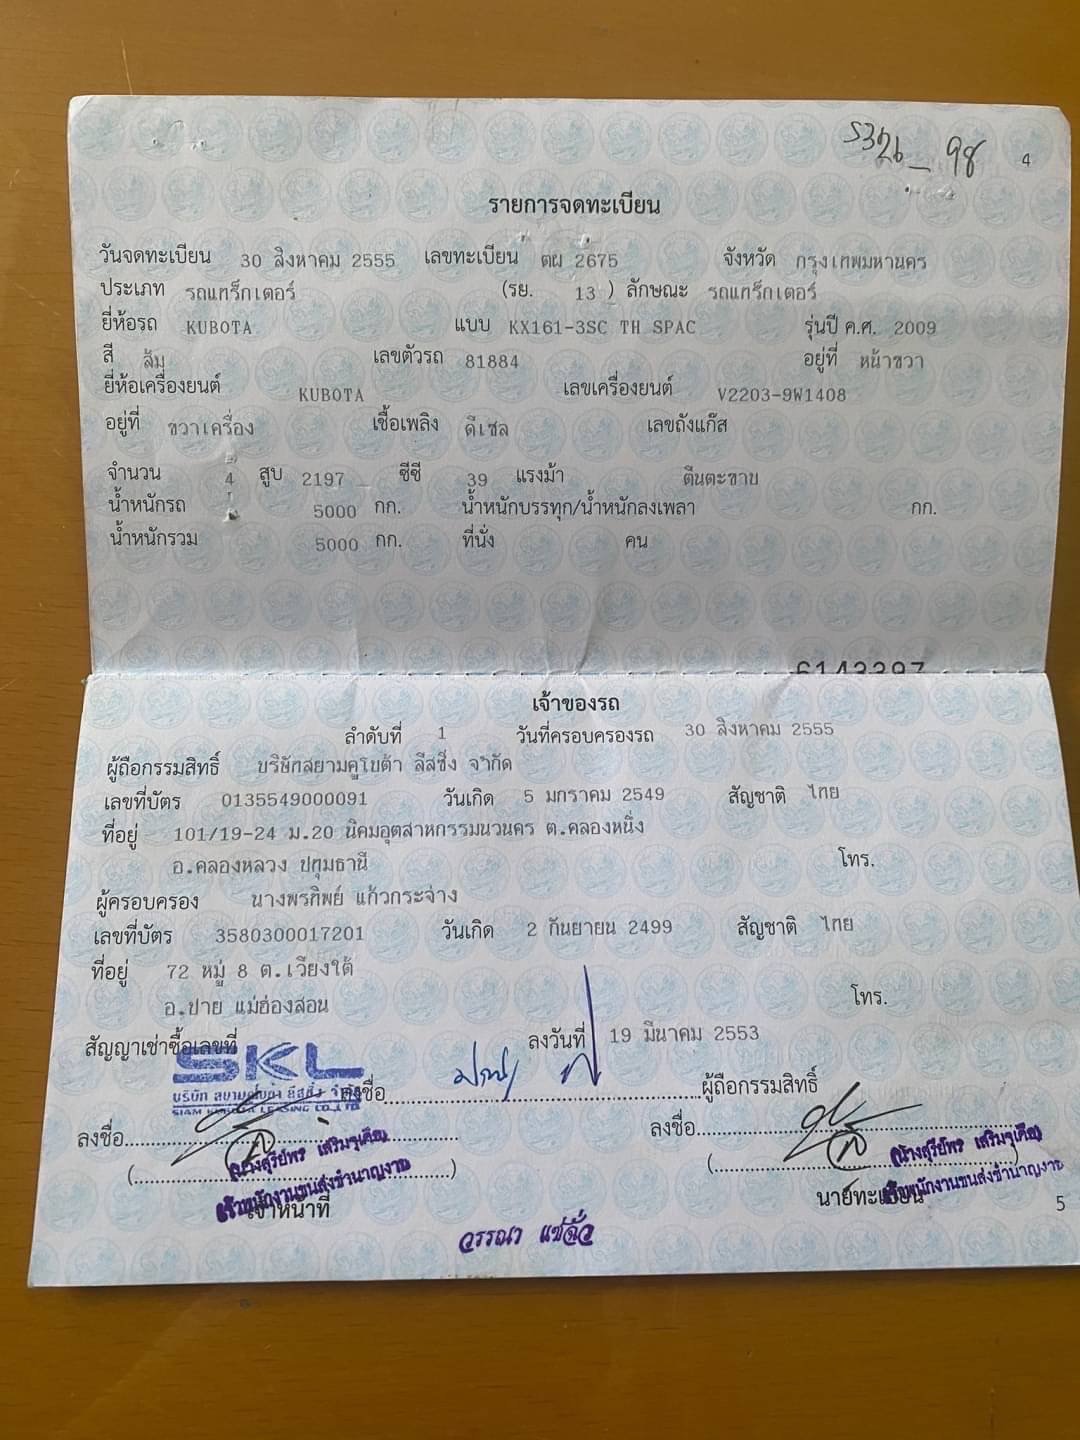 5326-98
4
รายการจดทะเบียน
วันจดทะเบียน 30 สิงหาคม 2555 เลขทะเบียน ตผ 2675 จังหวัด กรุงเทพมหานคร
ประเภท รถแทร็กเตอร์ (รย. 13 ) ลักษณะ รถแทร็กเตอร์
ยี่ห้อรถ KUBOTA แบบ KX161-3SC TH SPAC รุ่นปี ค.ศ. 2009
สี ส้ม เลขตัวรถ 81884 อยู่ที่ หน้าขวา
ยี่ห้อเครื่องยนต์ KUBOTA เลขเครื่องยนต์ V2203-9W1408
อยู่ที่ ขวาเครื่อง เชื้อเพลิง ดีเซล เลขถังแก๊ส
จำนวน 4 สูบ 2197 ซีซี 39 แรงม้า ตีนตะขาบ
น้ำหนักรถ 5000 กก. น้ำหนักบรรทุก/น้ำหนักลงเพลา กก.
น้ำหนักรวม 5000 กก. ที่นั่ง คน
6143397
เจ้าของรถ
ลำดับที่ 1 วันที่ครอบครองรถ 30 สิงหาคม 2555
ผู้ถือกรรมสิทธิ์ บริษัทสยามคูโบต้า ลีสซิ่ง จำกัด
เลขที่บัตร 0135549000091 วันเกิด 5 มกราคม 2549 สัญชาติ ไทย
ที่อยู่ 101/19-24 ม.20 นิคมอุตสาหกรรมนวนคร ต.คลองหนึ่ง
อ.คลองหลวง ปทุมธานี โทร.
ผู้ครอบครอง นางพรทิพย์ แก้วกระจ่าง
เลขที่บัตร 3580300017201 วันเกิด 2 กันยายน 2499 สัญชาติ ไทย
ที่อยู่ 72 หมู่ 8 ต.เวียงใต้
อ.ปาย แม่ฮ่องสอน โทร.
สัญญาเช่าซื้อเลขที่ ลงวันที่ 19 มีนาคม 2553
SKL
บริษัท สยามคูโบต้า ลีสซิ่ง จำกัด
SIAM KUBOTA LEASING CO.,LTD.
ลงชื่อ ผู้ถือกรรมสิทธิ์
ลงชื่อ ลงชื่อ
(นางสุรีย์พร เสริมรุเคือ) (นางสุรีย์พร เสริมรุเคือ)
เจ้าพนักงานขนส่งชำนาญงาน เจ้าพนักงานขนส่งชำนาญงาน
เจ้าหน้าที่ นายทะเบียน
วรรณา แซ่ฉั่ว
5